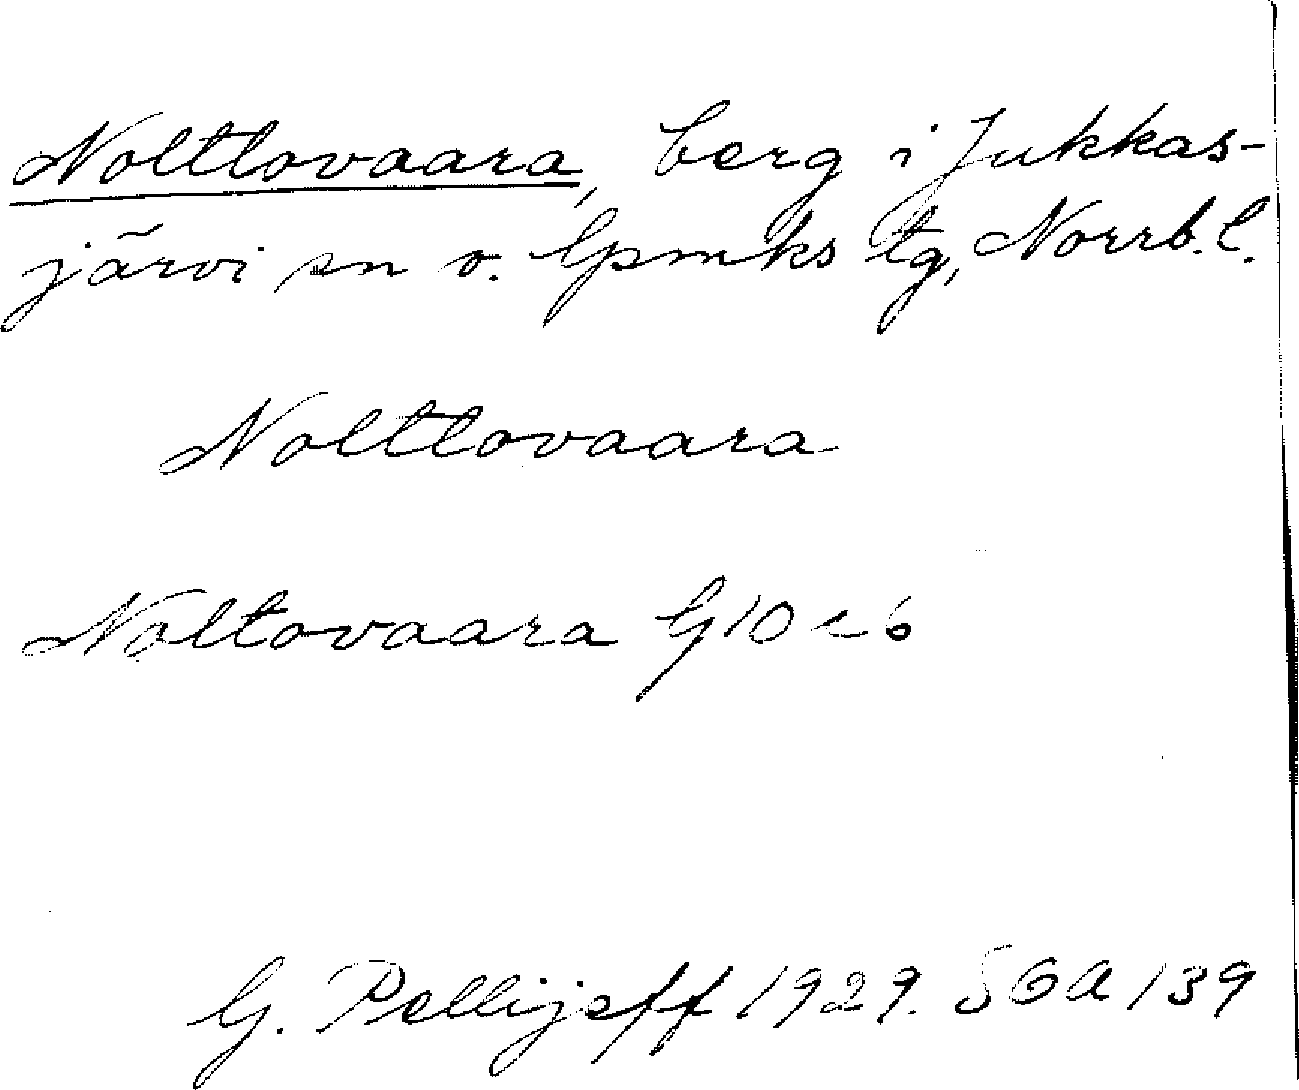 Nolttovaara, berg i Jukkas-
järvi sn o. lpmks tg, Norrb. l.
Nolttovaara
Noltovaara G10 c 6
G. Pellijeff 1929. SOA 139